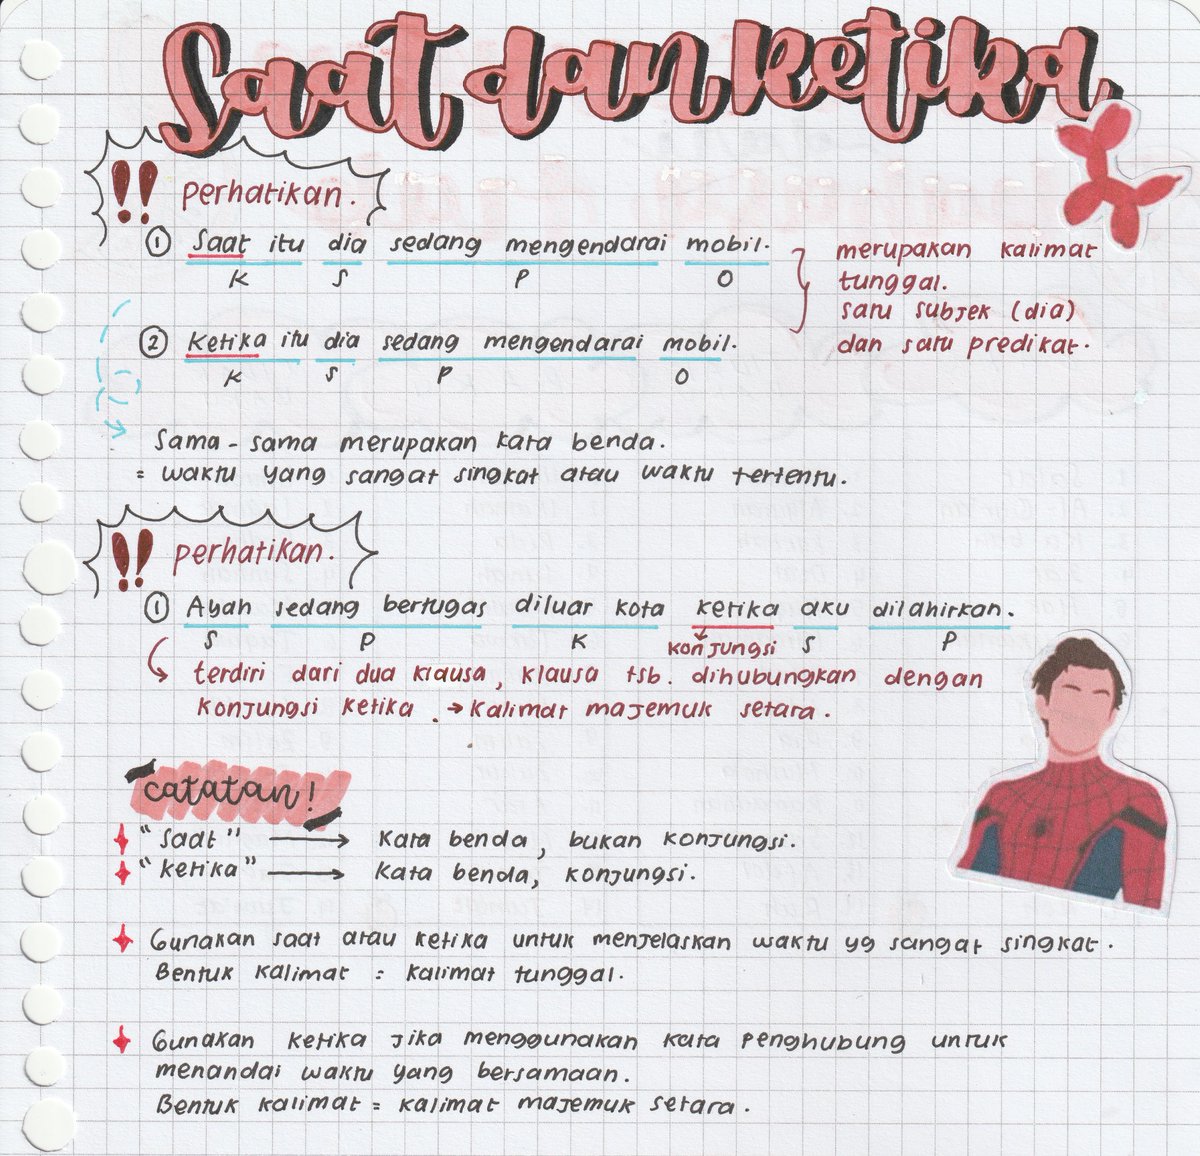 Saat dan ketika
!! perhatikan.
① Saat itu dia sedang mengendarai mobil.
K S P O
merupakan kalimat
tunggal.
satu subjek (dia)
dan satu predikat.
② Ketika itu dia sedang mengendarai mobil.
K S P O
Sama-sama merupakan kata benda.
= waktu yang sangat singkat atau waktu tertentu.
!! perhatikan.
① Ayah sedang bertugas diluar kota ketika aku dilahirkan.
S P K konjungsi S P
terdiri dari dua klausa, klausa tsb. dihubungkan dengan
konjungsi ketika. → kalimat majemuk setara.
catatan!
"Saat" → kata benda, bukan konjungsi.
"ketika" → kata benda, konjungsi.
Gunakan saat atau ketika untuk menjelaskan waktu yg sangat singkat.
Bentuk kalimat = kalimat tunggal.
Gunakan ketika jika menggunakan kata penghubung untuk
menandai waktu yang bersamaan.
Bentuk kalimat = kalimat majemuk setara.